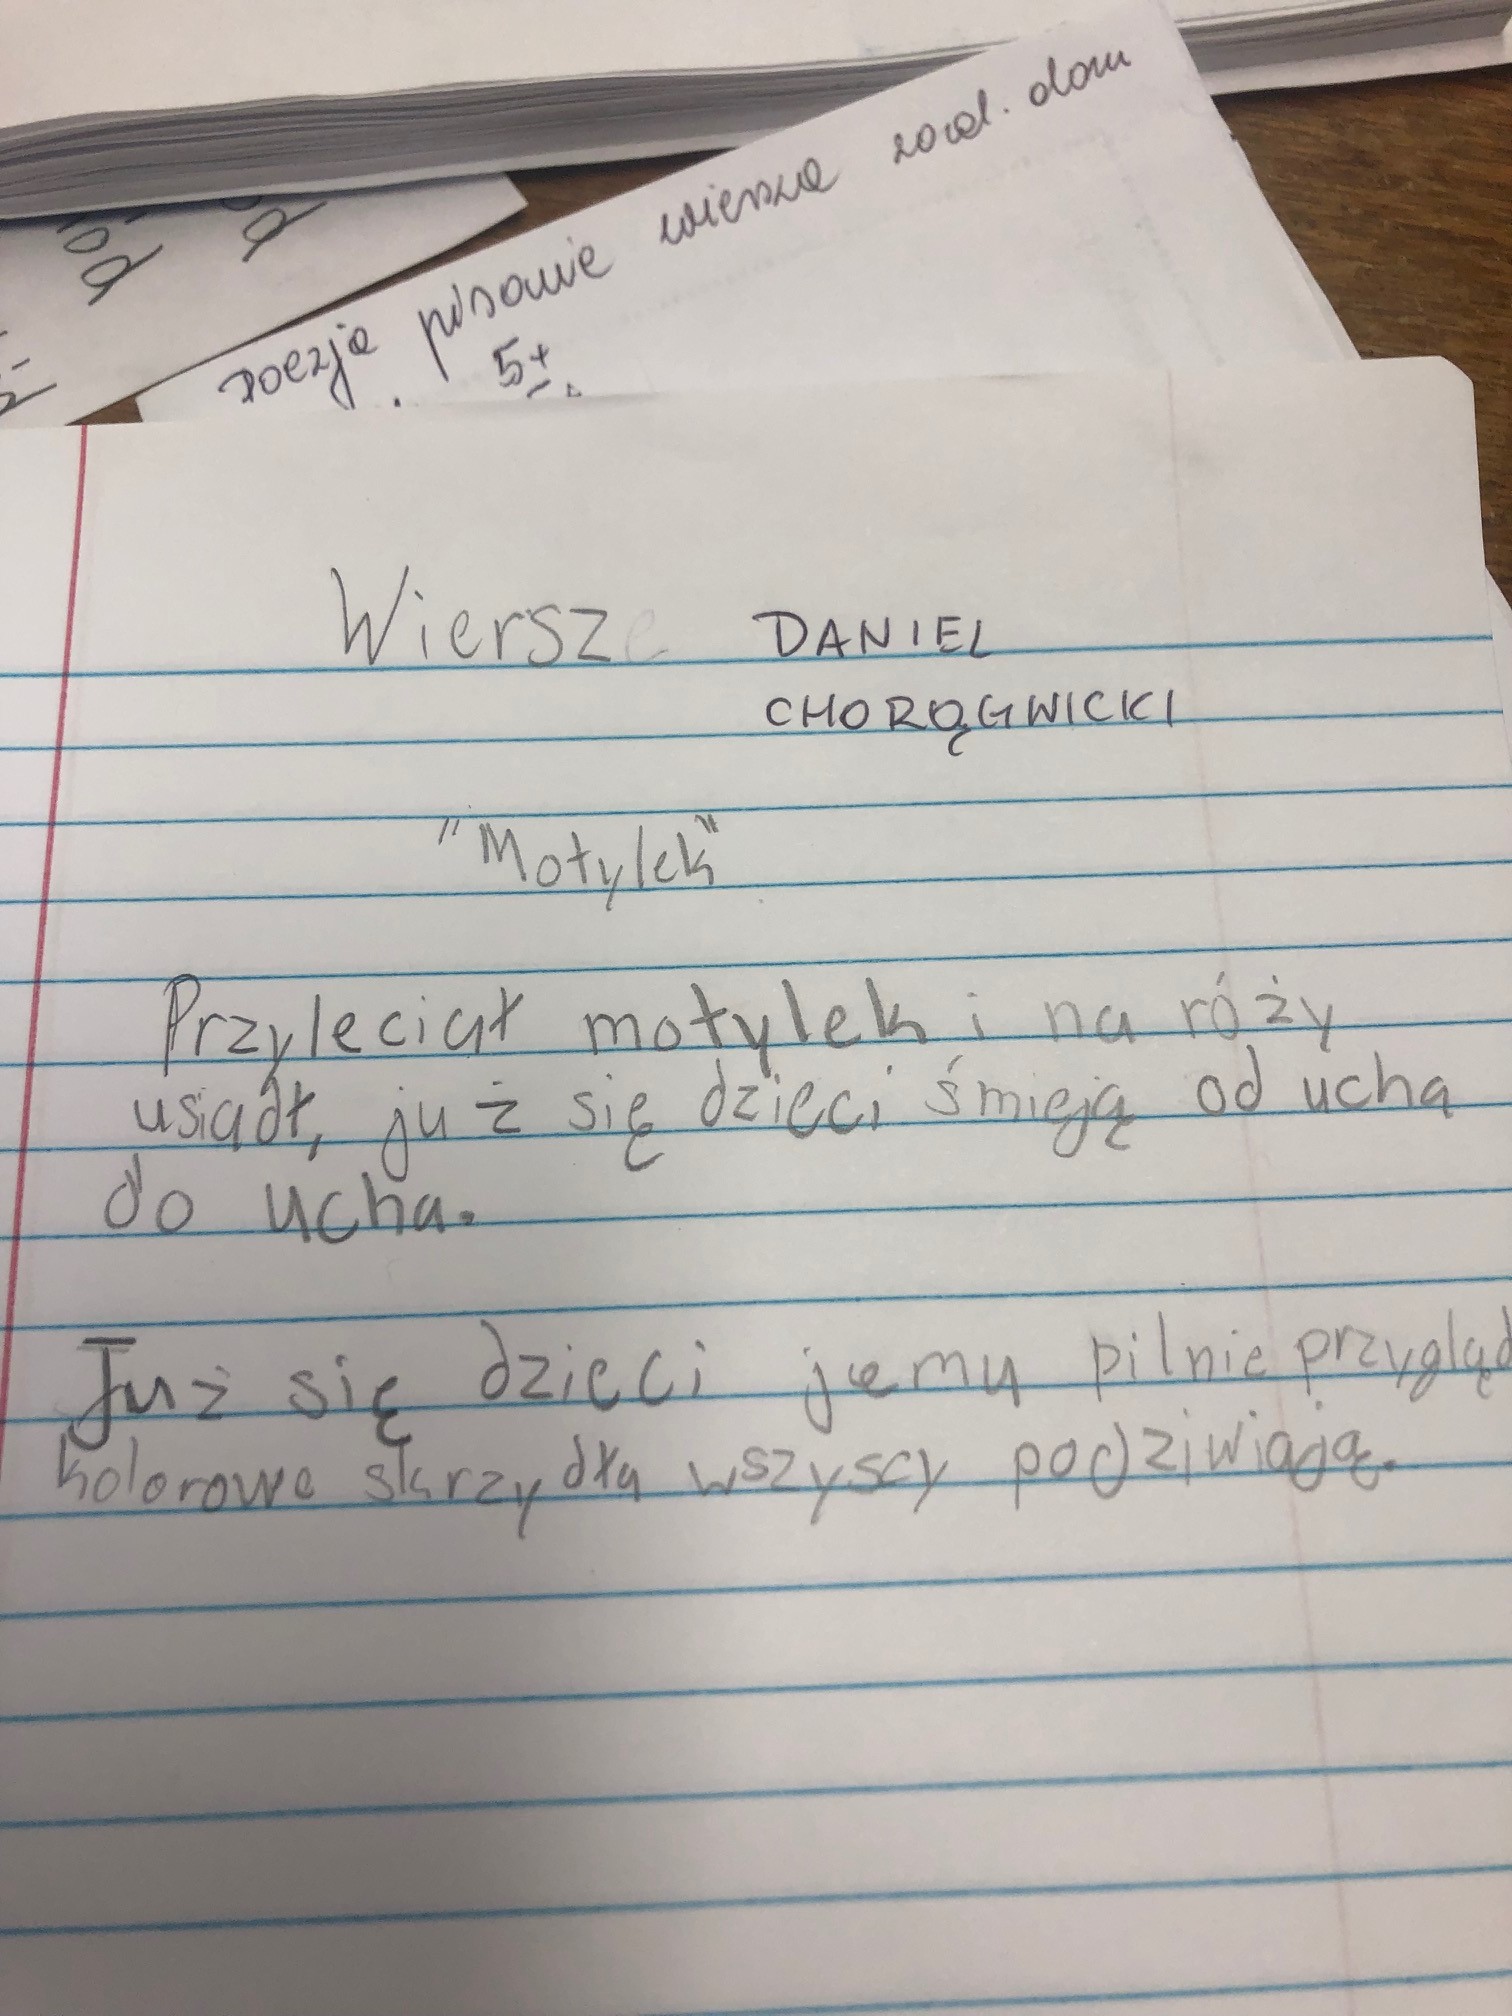 poezja pisanie wiersza zad. dom
5+
Wiersz DANIEL
CHORĄGWICKI
"Motylek"
Przyleciał motylek i na róży
usiadł, już się dzieci śmieją od ucha
do ucha.
Już się dzieci jemu pilnie przygląd
kolorowe skrzydła wszyscy podziwiają.